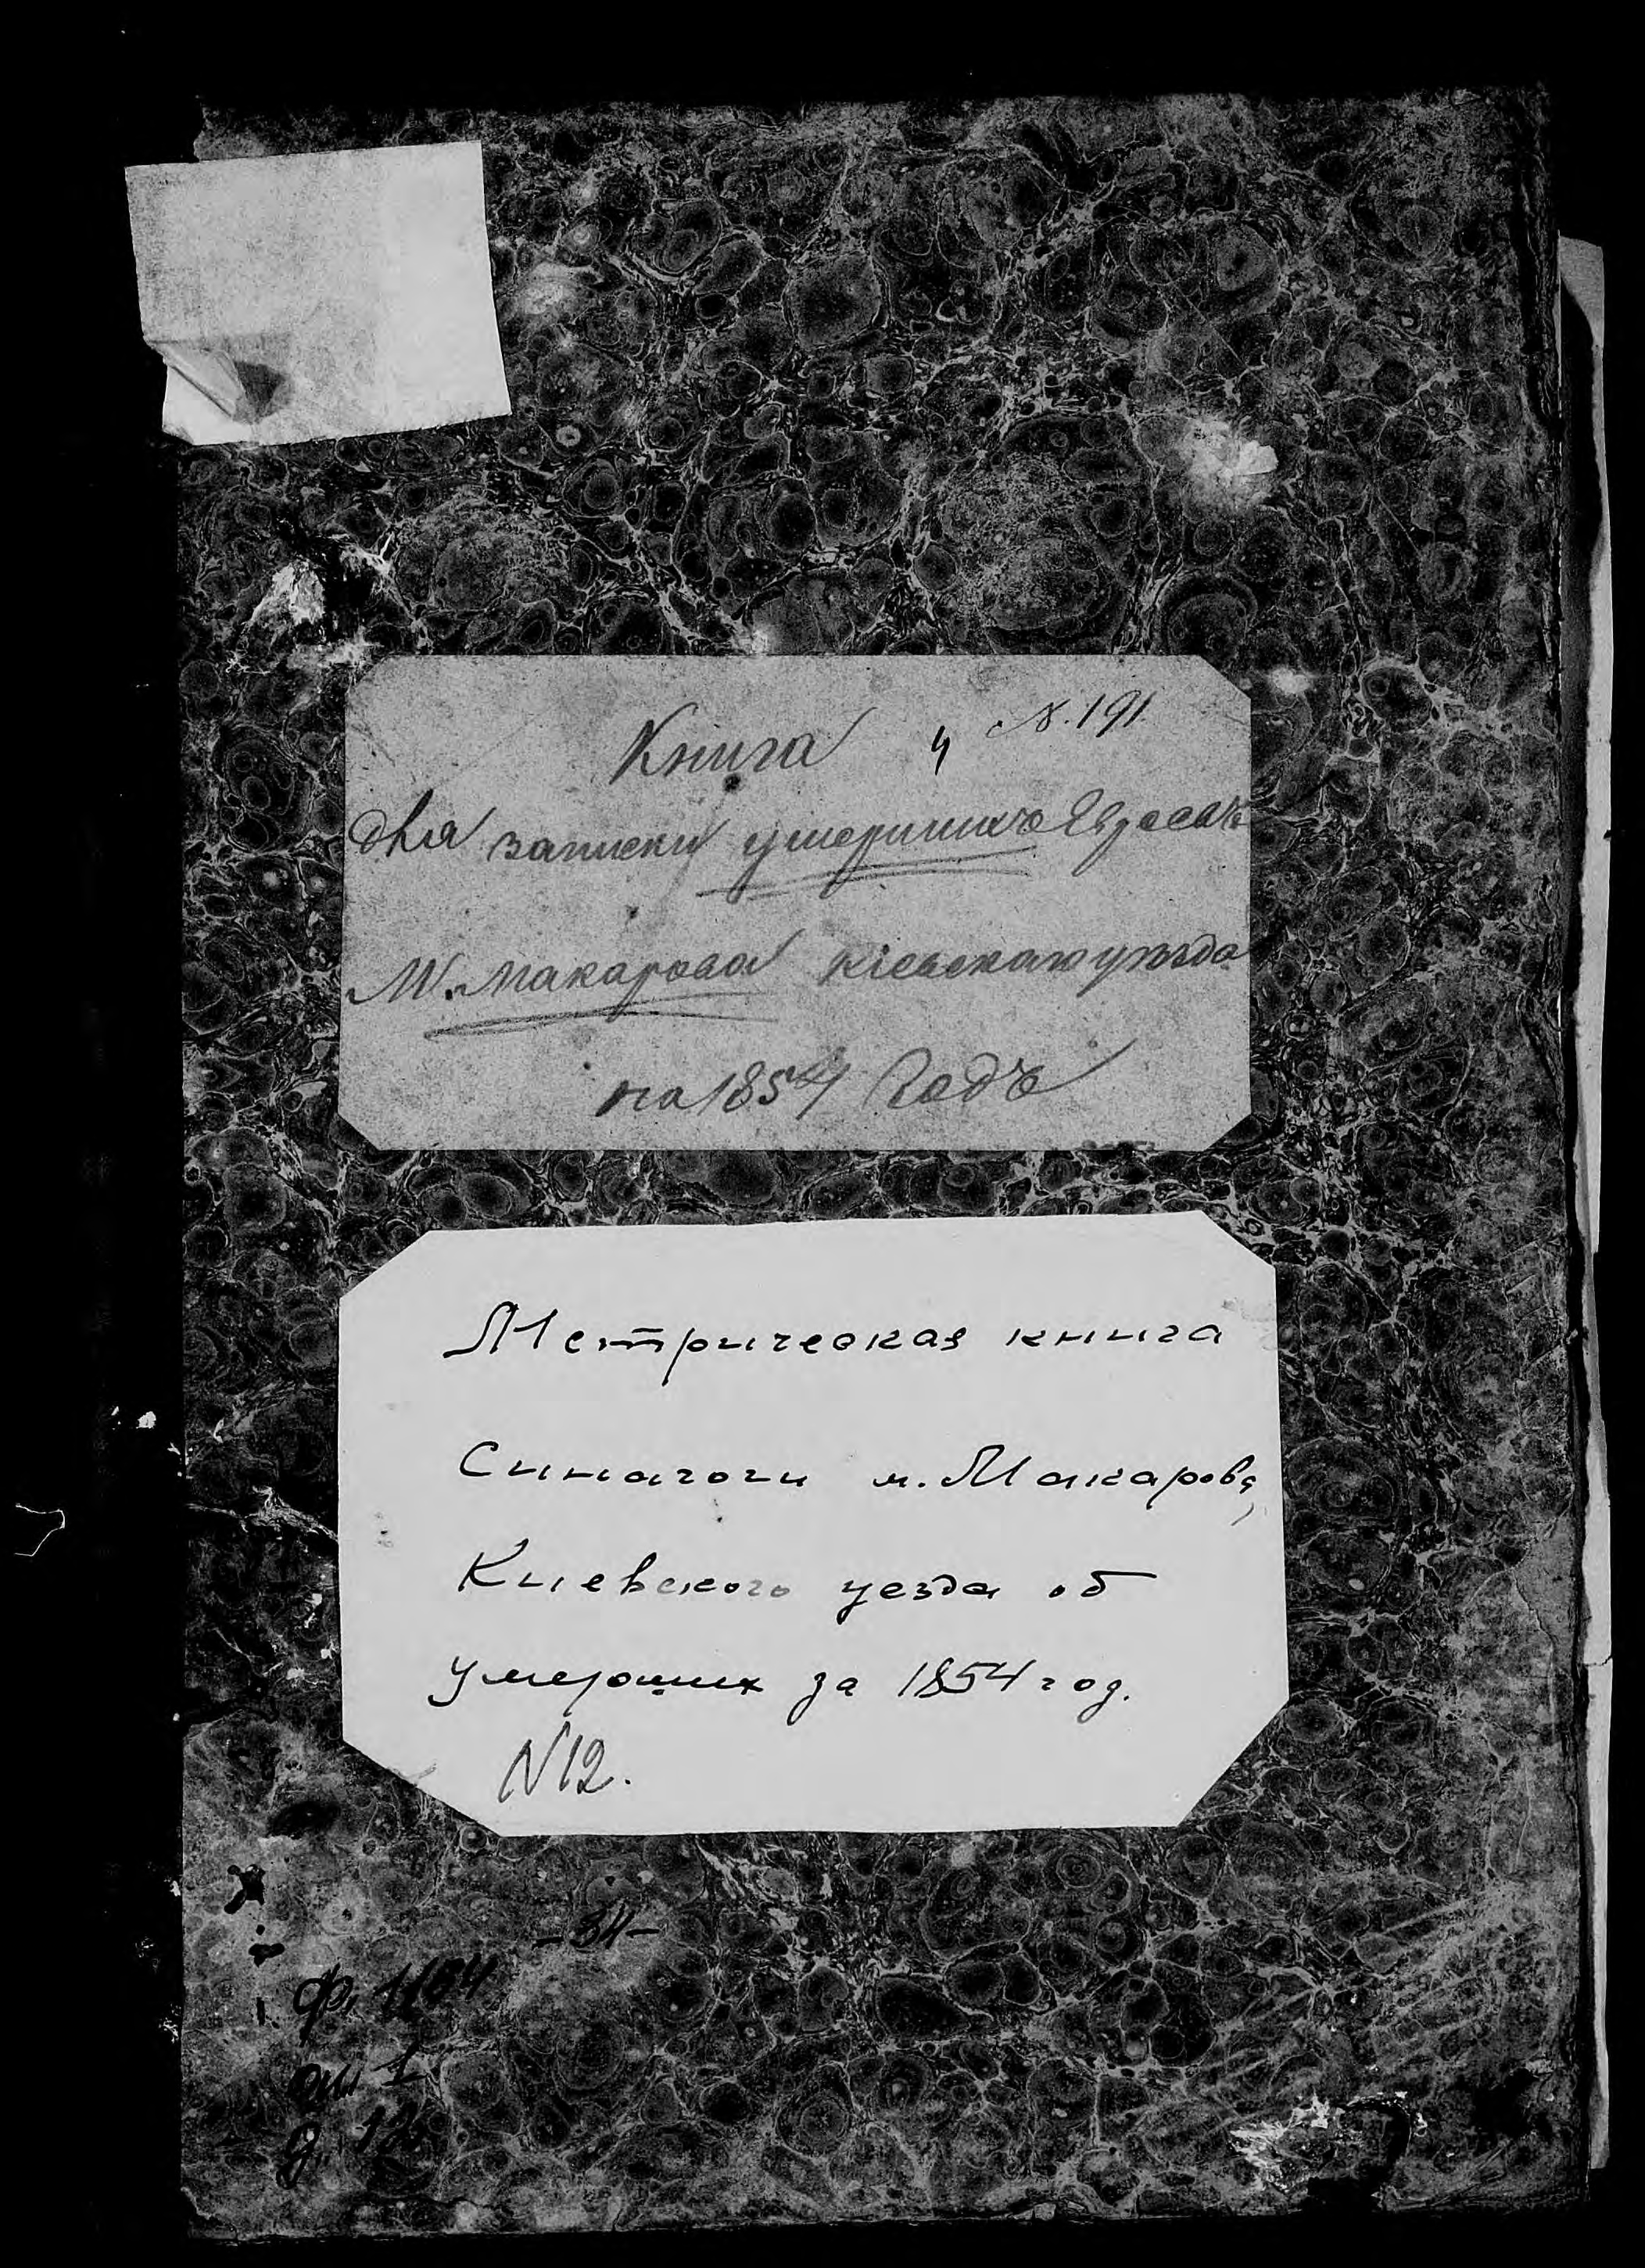 №. 191.
Книга 4
для записки умершихъ Евреевъ
М. Макарова Кіевскаго уѣзда
на 1854 Годъ
Метрическая книга
Синагоги м. Макарова,
Киевского уезда об
умерших за 1854 год.
N12.
-34-
ф. 1164
оп. 1
д.